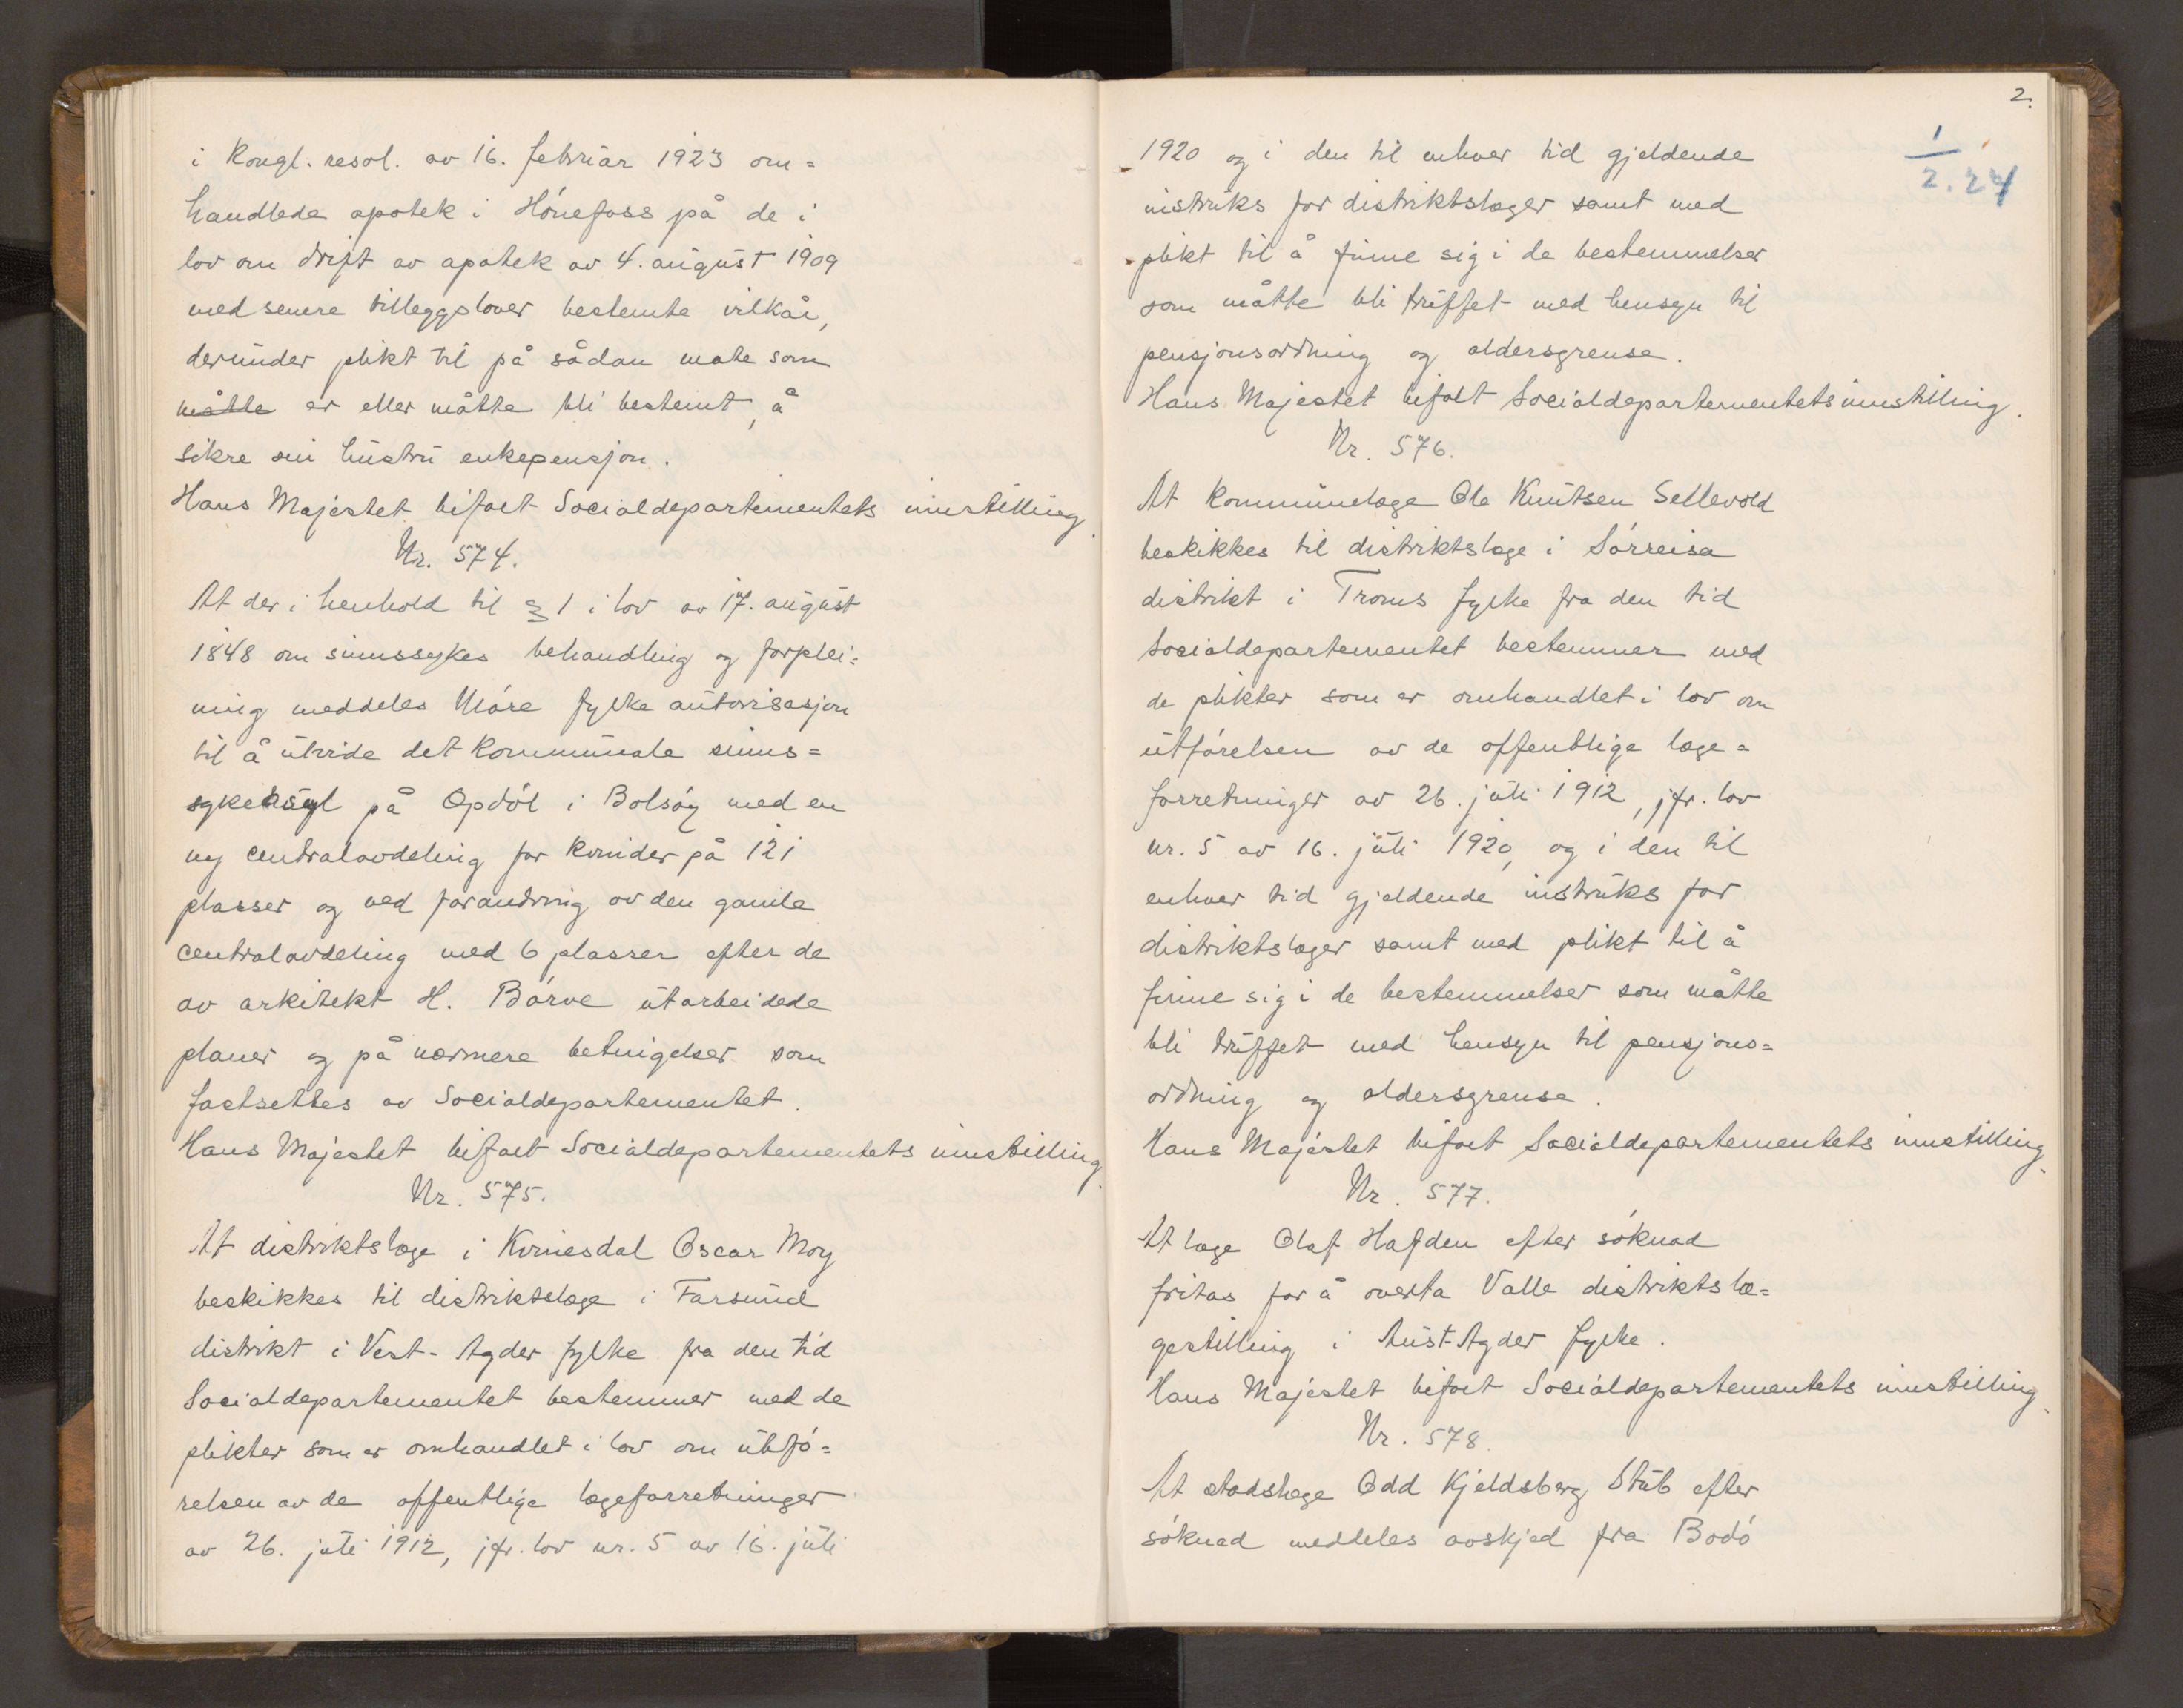 i kongl. resol. av 16. februar 1923 om=
handlede apotek i Hönefoss på de i
lov om drift av apotek av 4. august 1909
med senere tilleggslover bestemte vilkår,
derunder plikt til på sådan måte som
måtte er eller måtte bli bestemt, å
sikre sin hustru enkepensjon.
Hans Majestet bifalt Socialdepartementets innstilling.
Nr. 574.
At der i henhold til § 1 i lov av 17. august
1848 om sinnssykes behandling og forplei=
ning meddeles Möre fylke autorisasjon
til å utvide det kommunale sinns=
sykeasyl på Opdöl i Bolsöy med en
ny centralavdeling for kvinder på 121
plasser og ved forandring av den gamle
centralavdeling med 6 plasser efter de
av arkitekt H. Börve utarbeidede
planer og på nærmere betingelser som
fastsettes av Socialdepartementet.
Hans Majestet bifalt Socialdepartementets innstilling.
Nr. 575.
At distriktslæge i Kvinesdal Oscar Moy
beskikkes til distriktslæge i Farsund
distrikt i Vest-Agder fylke fra den tid
Socialdepartementet bestemmer med de
plikter som er omhandlet i lov om utfö=
relsen av de offentlige lægeforretninger
av 26. juli 1912, jfr. lov nr. 5 av 16. juli
2.
1/2.24
1920 og i den til enhver tid gjeldende
instruks for distriktslæger samt med
plikt til å finne sig i de bestemmelser
som måtte bli truffet med hensyn til
pensjonsordning og aldersgrense.
Hans Majestet bifalt Socialdepartementets innstilling.
Nr. 576.
At kommunelæge Ole Knutsen Sellevold
beskikkes til distriktslæge i Sörreisa
distrikt i Troms fylke fra den tid
Socialdepartementet bestemmer med
de plikter som er omhandlet i lov om
utförelsen av de offentlige læge=
forretninger av 26. juli 1912, jfr. lov
nr. 5 av 16. juli 1920, og i den til
enhver tid gjeldende instruks for
distriktslæger samt med plikt til å
finne sig i de bestemmelser som måtte
bli truffet med hensyn til pensjons=
ordning og aldersgrense.
Hans Majestet bifalt Socialdepartementets innstilling.
Nr. 577.
At læge Olaf Hafden efter söknad
fritas for å overta Valle distriktslæ=
gestilling i Aust-Agder fylke.
Hans Majestet bifalt Socialdepartementets innstilling.
Nr. 578.
At stadslæge Odd Kjeldsberg Stub efter
söknad meddeles avskjed fra Bodö